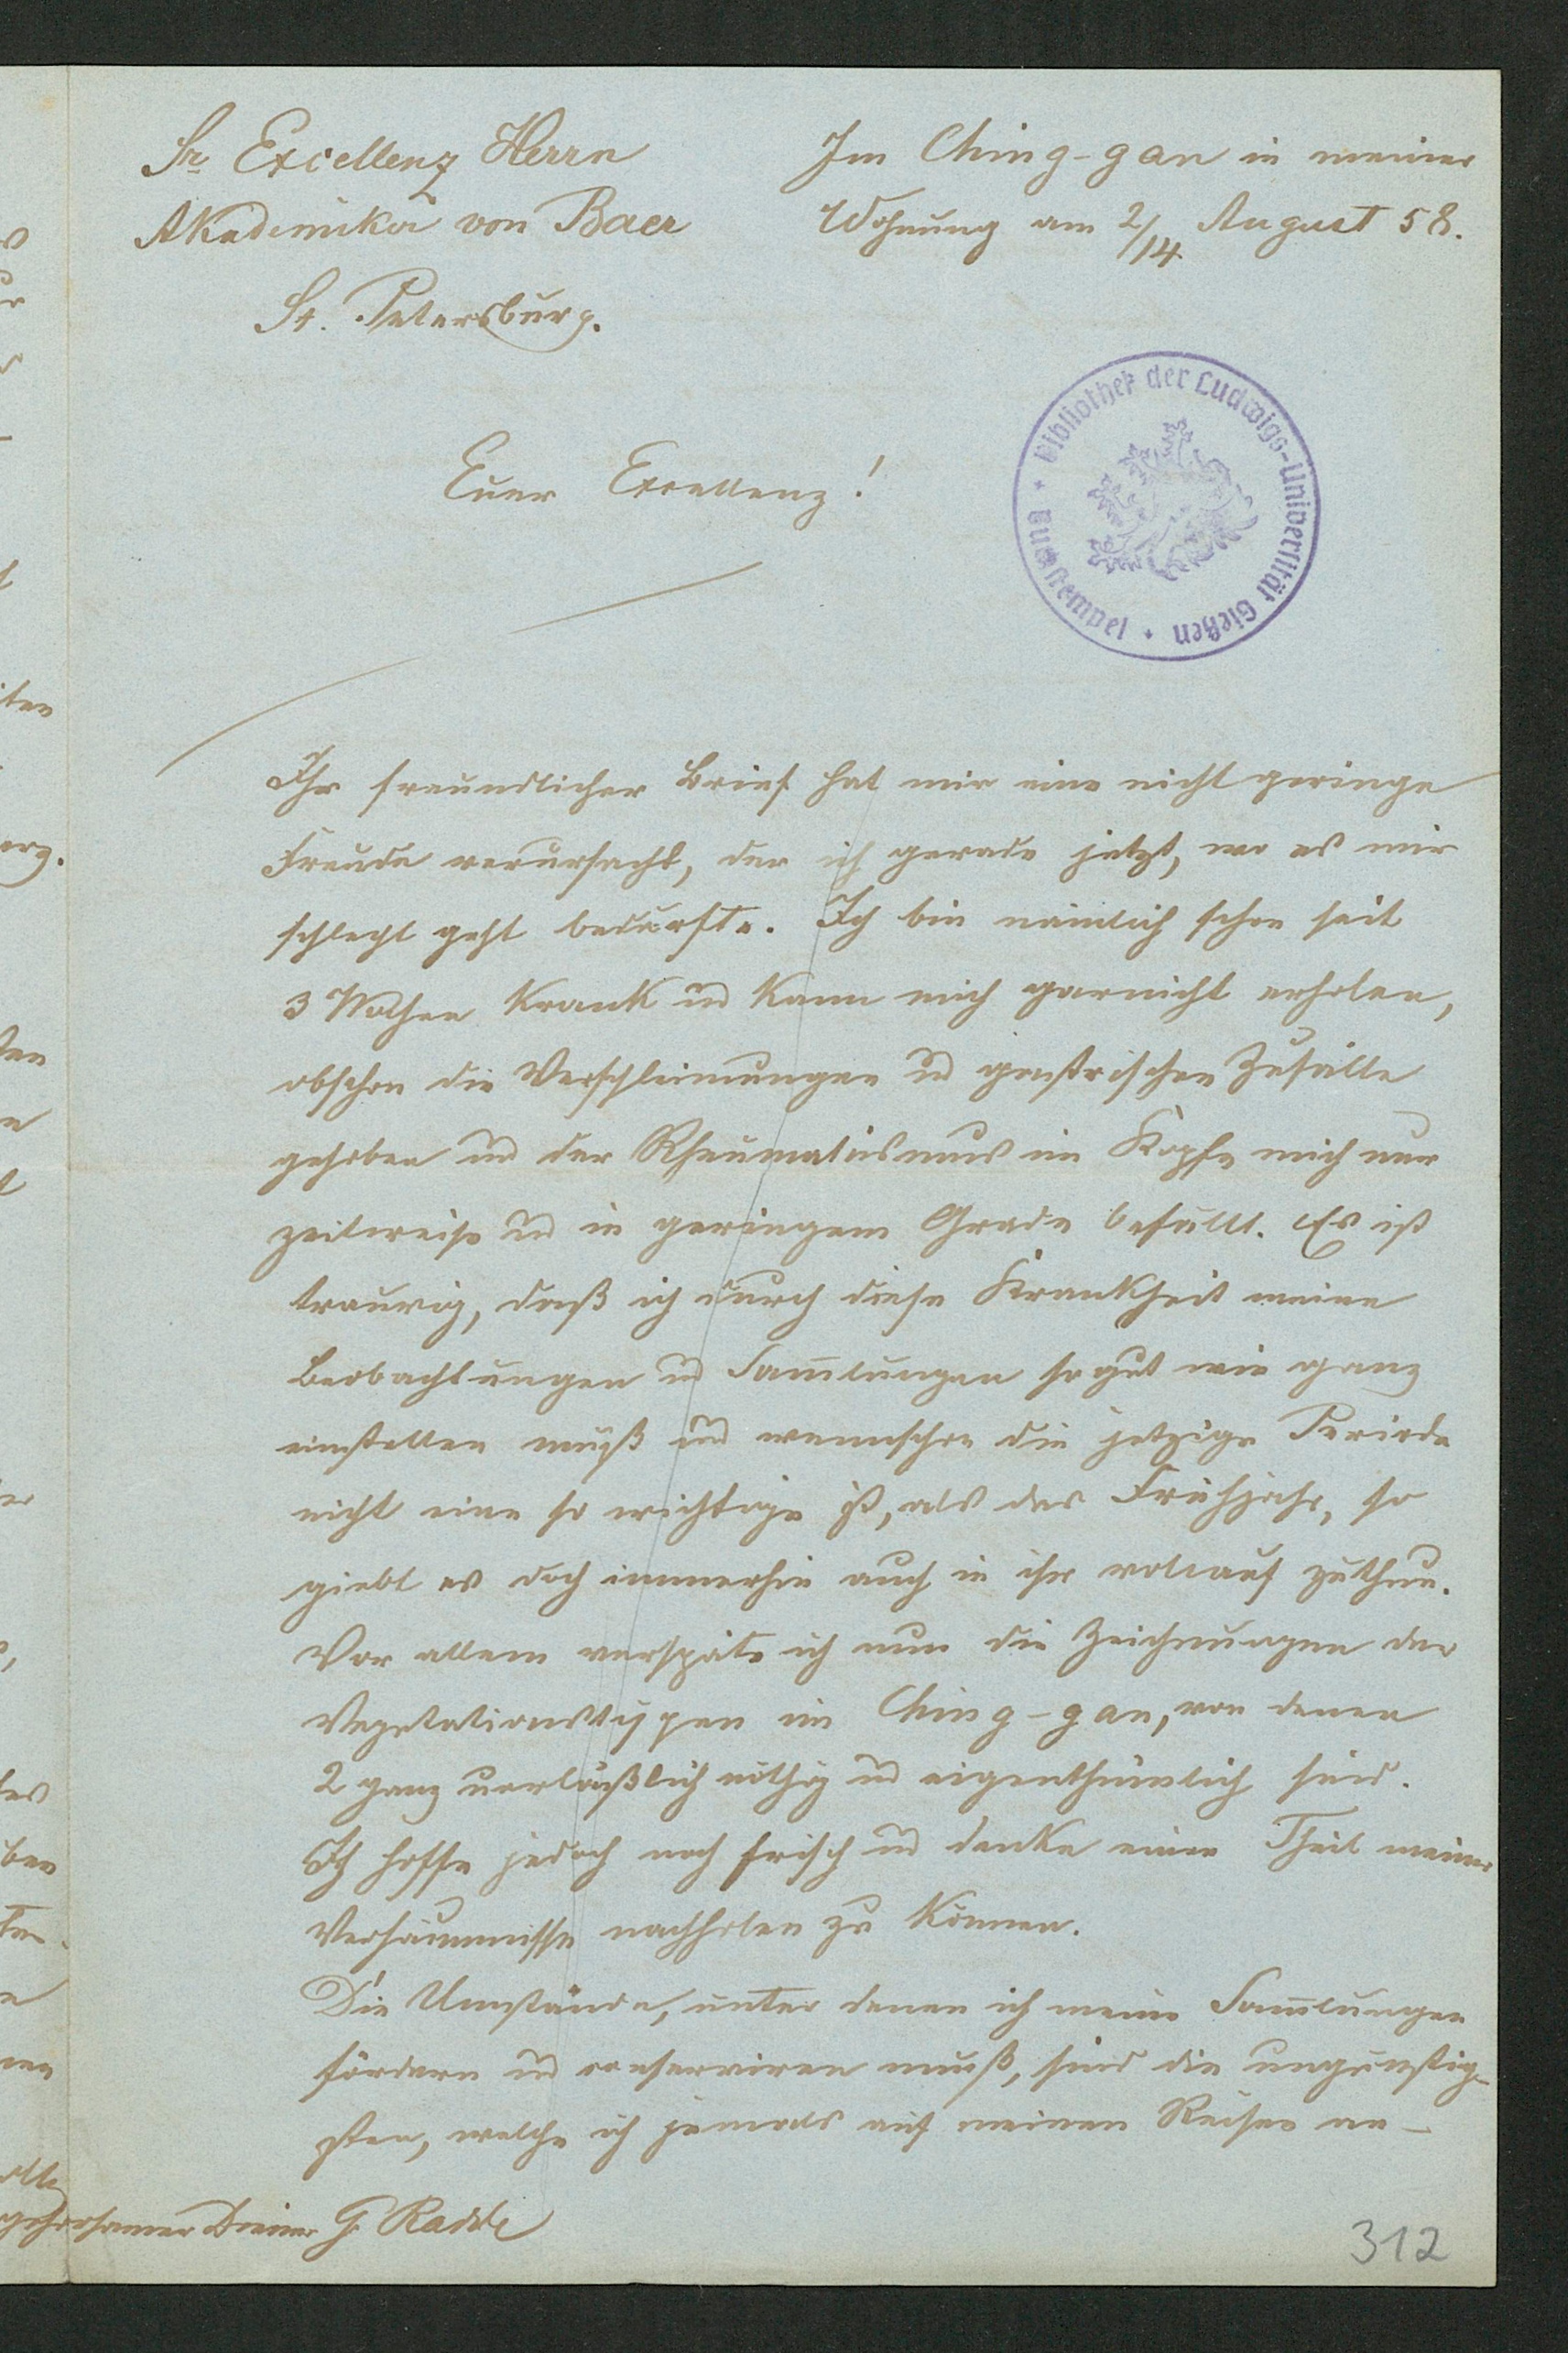 Sr Excellenz Herrn
Akademiker von Baer
St. Petersburg.
Im Ching-gan in meiner
Wohnung am 2/14 August 58.
Euer Excellenz!
Bibliothek der Ludwigs-Universität Gießen
Ihr freundlicher Brief hat mir eine nicht geringe
Freude verursacht, der ich gerade jetzt, wo es mir
schlecht geht bedurfte. Ich bin nämlich schon seit
3 Wochen krank und kann mich garnicht erholen,
obschon die Verschleimungen und gastrischen Zufälle
gehoben und der Rheumatismus im Kopfe mich nur
zeitweise und in geringem Grade befällt. Es ist
traurig, daß ich durch diese Krankheit meine
Beobachtungen und Sammlungen so gut wie ganz
einstellen muß und wennschon die jetzige Periode
nicht eine so wichtige ist, als das Frühjahr, so
giebt es doch immerhin auch in ihr vollauf zu thun.
Vor allem verspäte ich nun die Zeichnungen der
Vegetationstypen im Ching-gan, von denen
2 ganz unerläßlich nöthig und eigenthümlich sind.
Ich hoffe jedoch noch frisch und denke einen Theil meiner
Versäumnisse nachholen zu können.
Die Umstände, unter denen ich meine Sammlungen
fördern und conserviren muß, sind die ungünstig-
sten, welche ich jemals auf meinen Reisen an-
gehorsamer Diener G. Radde
312